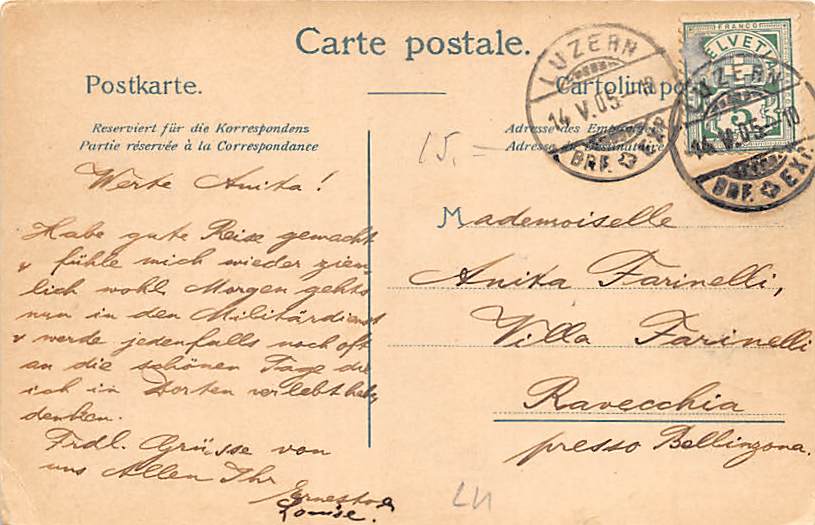 Carte postale.
Postkarte.
Cartolina po
Reserviert für die Korrespondenz
Partie réservée à la Correspondance
Adresse des
Adresse
LUZERN
14.V.05-10
BRF. EXP.
FRANCO
HELVETIA
5
LUZERN
14.V.05-10
BRF. EXP.
15.-
Werte Anita!
Habe gute Reise gemacht
& fühle mich wieder ziem-
lich wohl. Morgen gehts
nun in den Militärdienst
& werde jedenfalls noch oft
an die schönen Tage die
ich in Dorten verlebt habe
denken.
Frdl. Grüsse von
uns Allen Ihr
Ernesto &
Louise.
Mademoiselle
Anita Farinelli,
Villa Farinelli
Ravecchia
presso Bellinzona.
LU